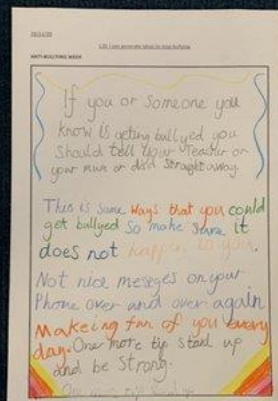 L.O. I can generate ideas to stop bullying
ANTI-BULLYING WEEK
If you or someone you
know is geting bullyed you
should tell your Teacher or
your mum or dad straight away.
This is some ways that you could
get bullyed so make sure it
does not happen to you.
Not nice meseges on your
Phone over and over again
Makeing fun of you every
day. One more tip stand up
and be strong.